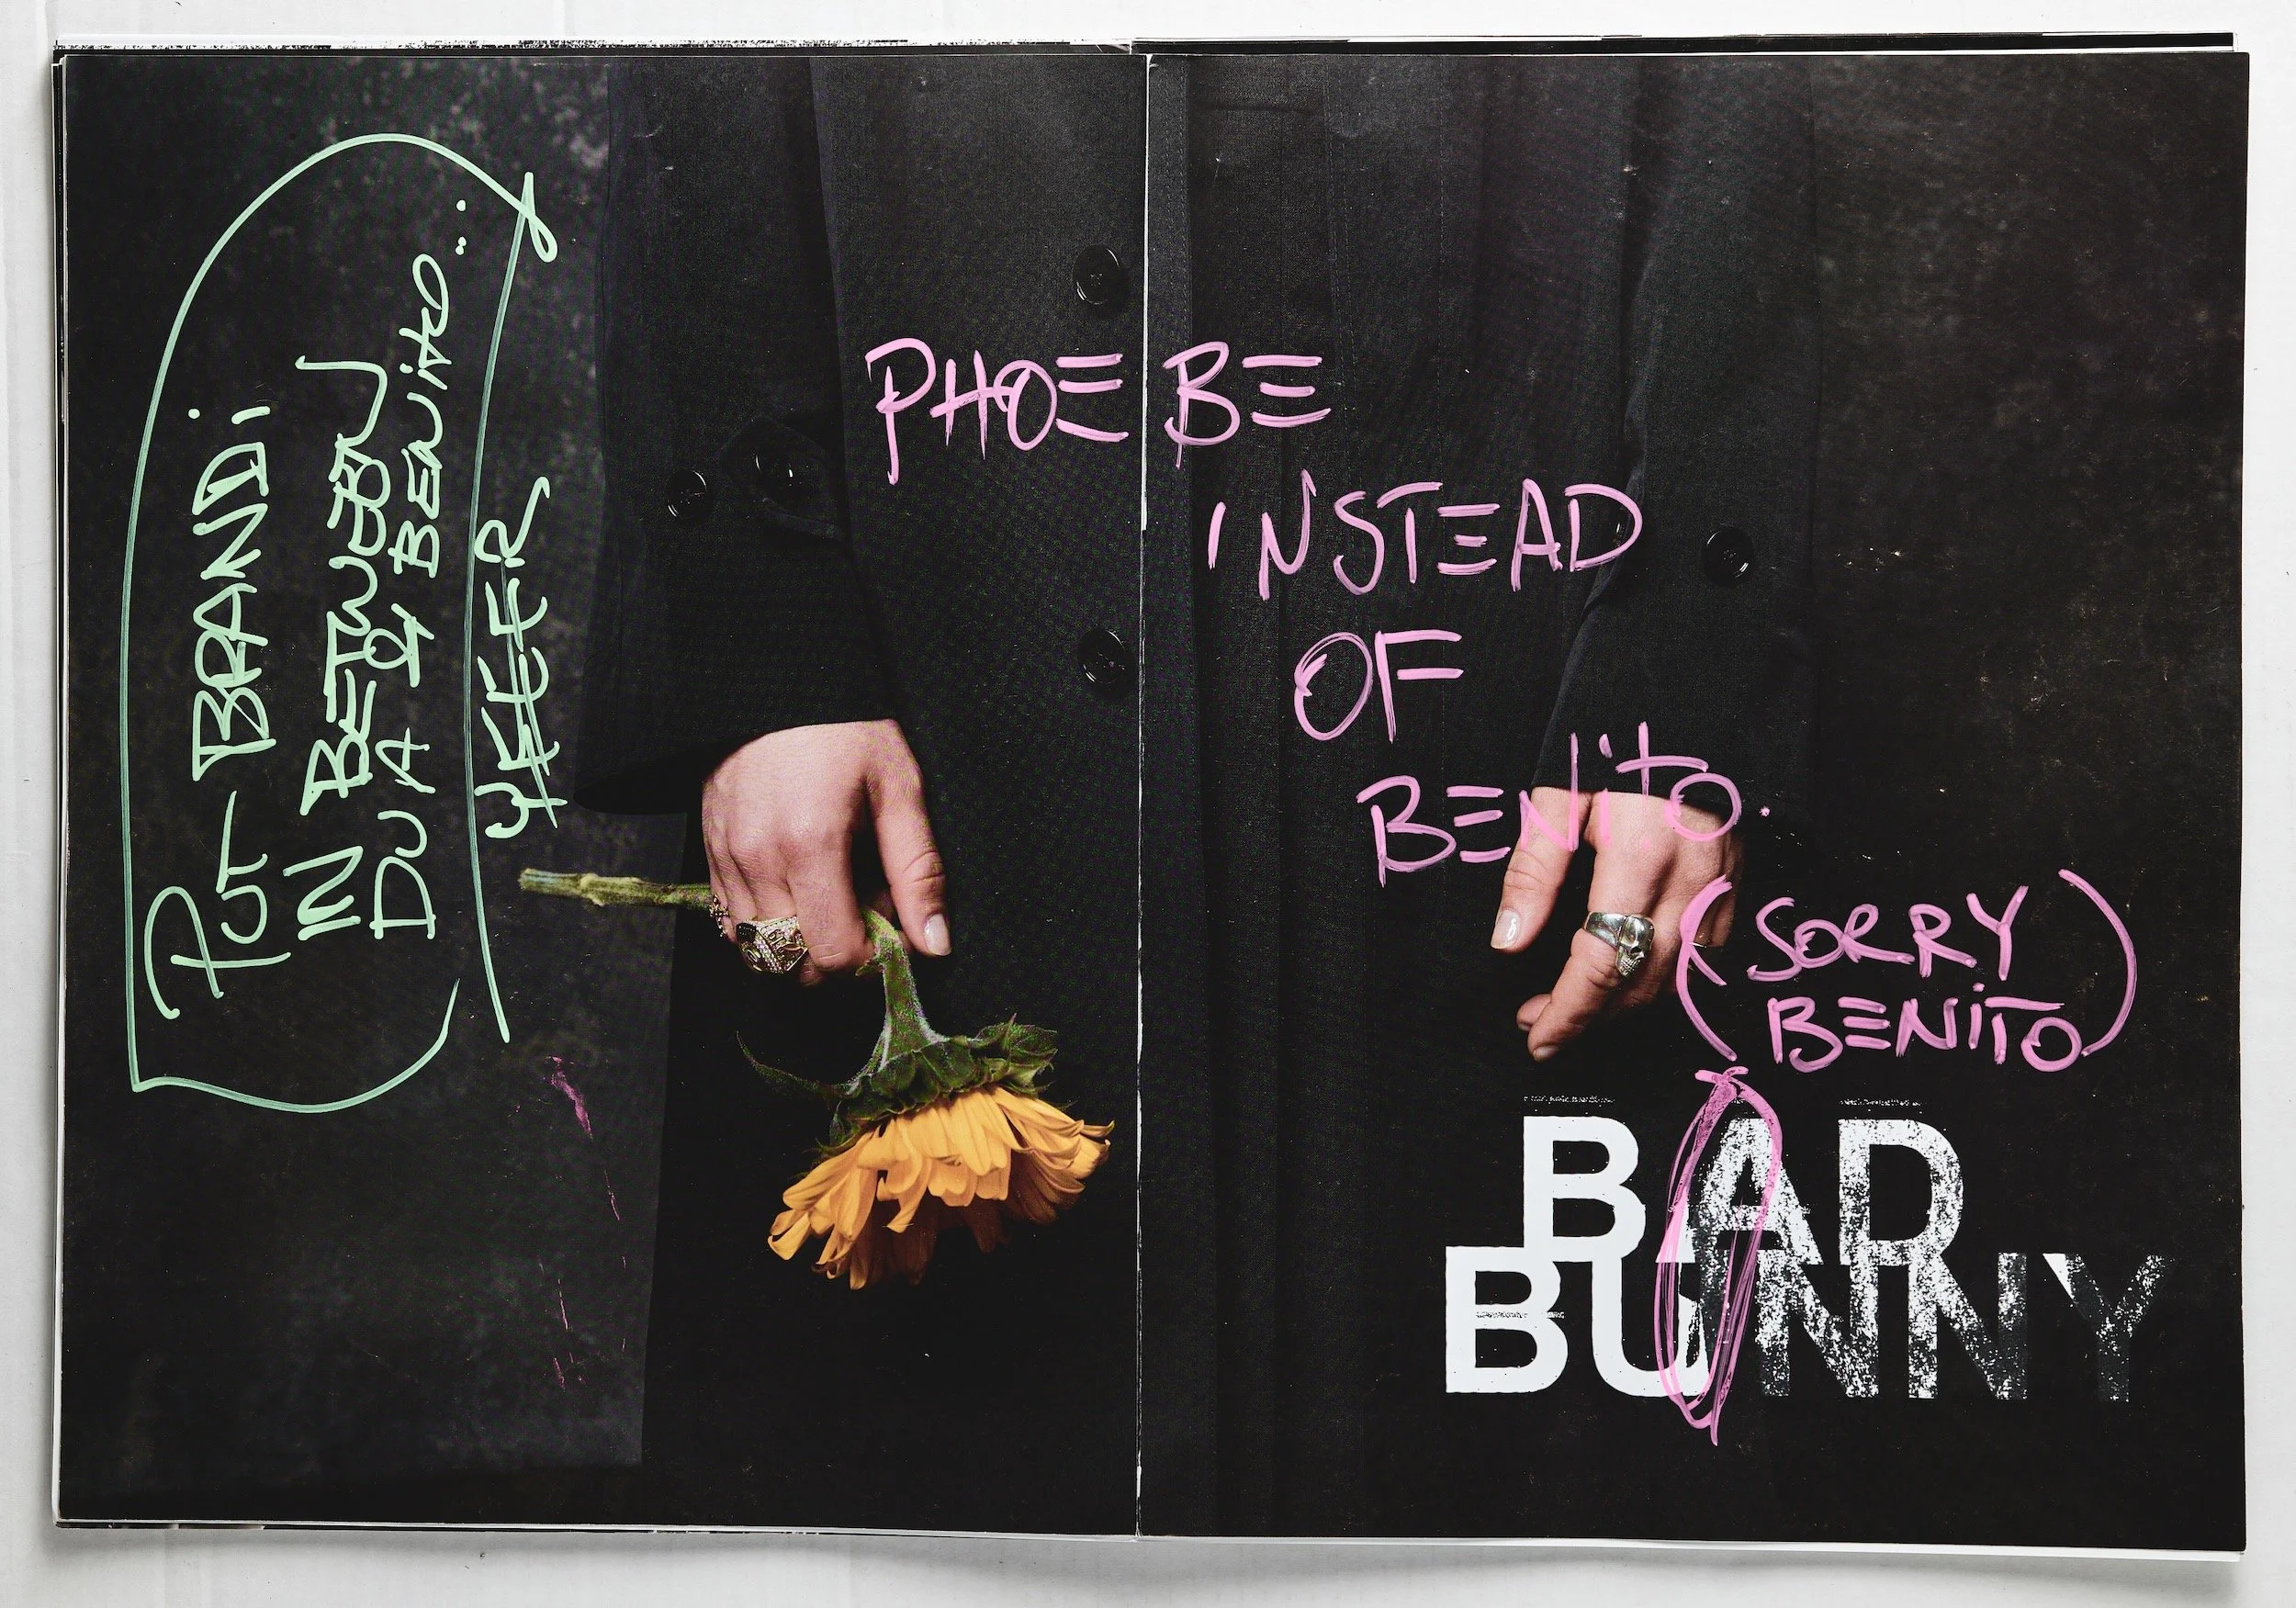 PUT BRANDi
IN BETWEEN
DUA & BENito...
YEEER
PHOEBE
INSTEAD
OF
BENito.
(SORRY
BENiTO)
BAD
BUNNY